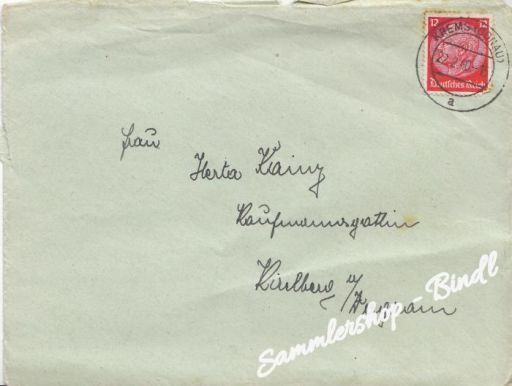 12 12
Deutsches Reich
KREMS (DONAU)
a
Frau
Herta Kainz
Kaufmannsgattin
Kirchberg a/
Wagram
Sammlershop - Bindl